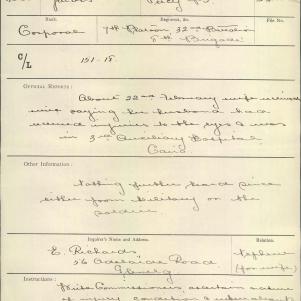 Rank. Regiment, &c. File No.
Corporal 7th Platoon 32nd Battalion
8th Brigade
C/L 151.15.
GENERAL REPORTS: About 22nd February wife received
wire saying her husband had
received injuries to the eyes & was
in 3rd Auxiliary Hospital,
Other Information:
nothing further heard since
either from military or the
soldier
Inquirer's Name and Address. Relation.
E. Richards
26 Adelaide Road
Glenelg (for wife)
Instructions: Write Commissioners, ascertain nature
of injury, condition &